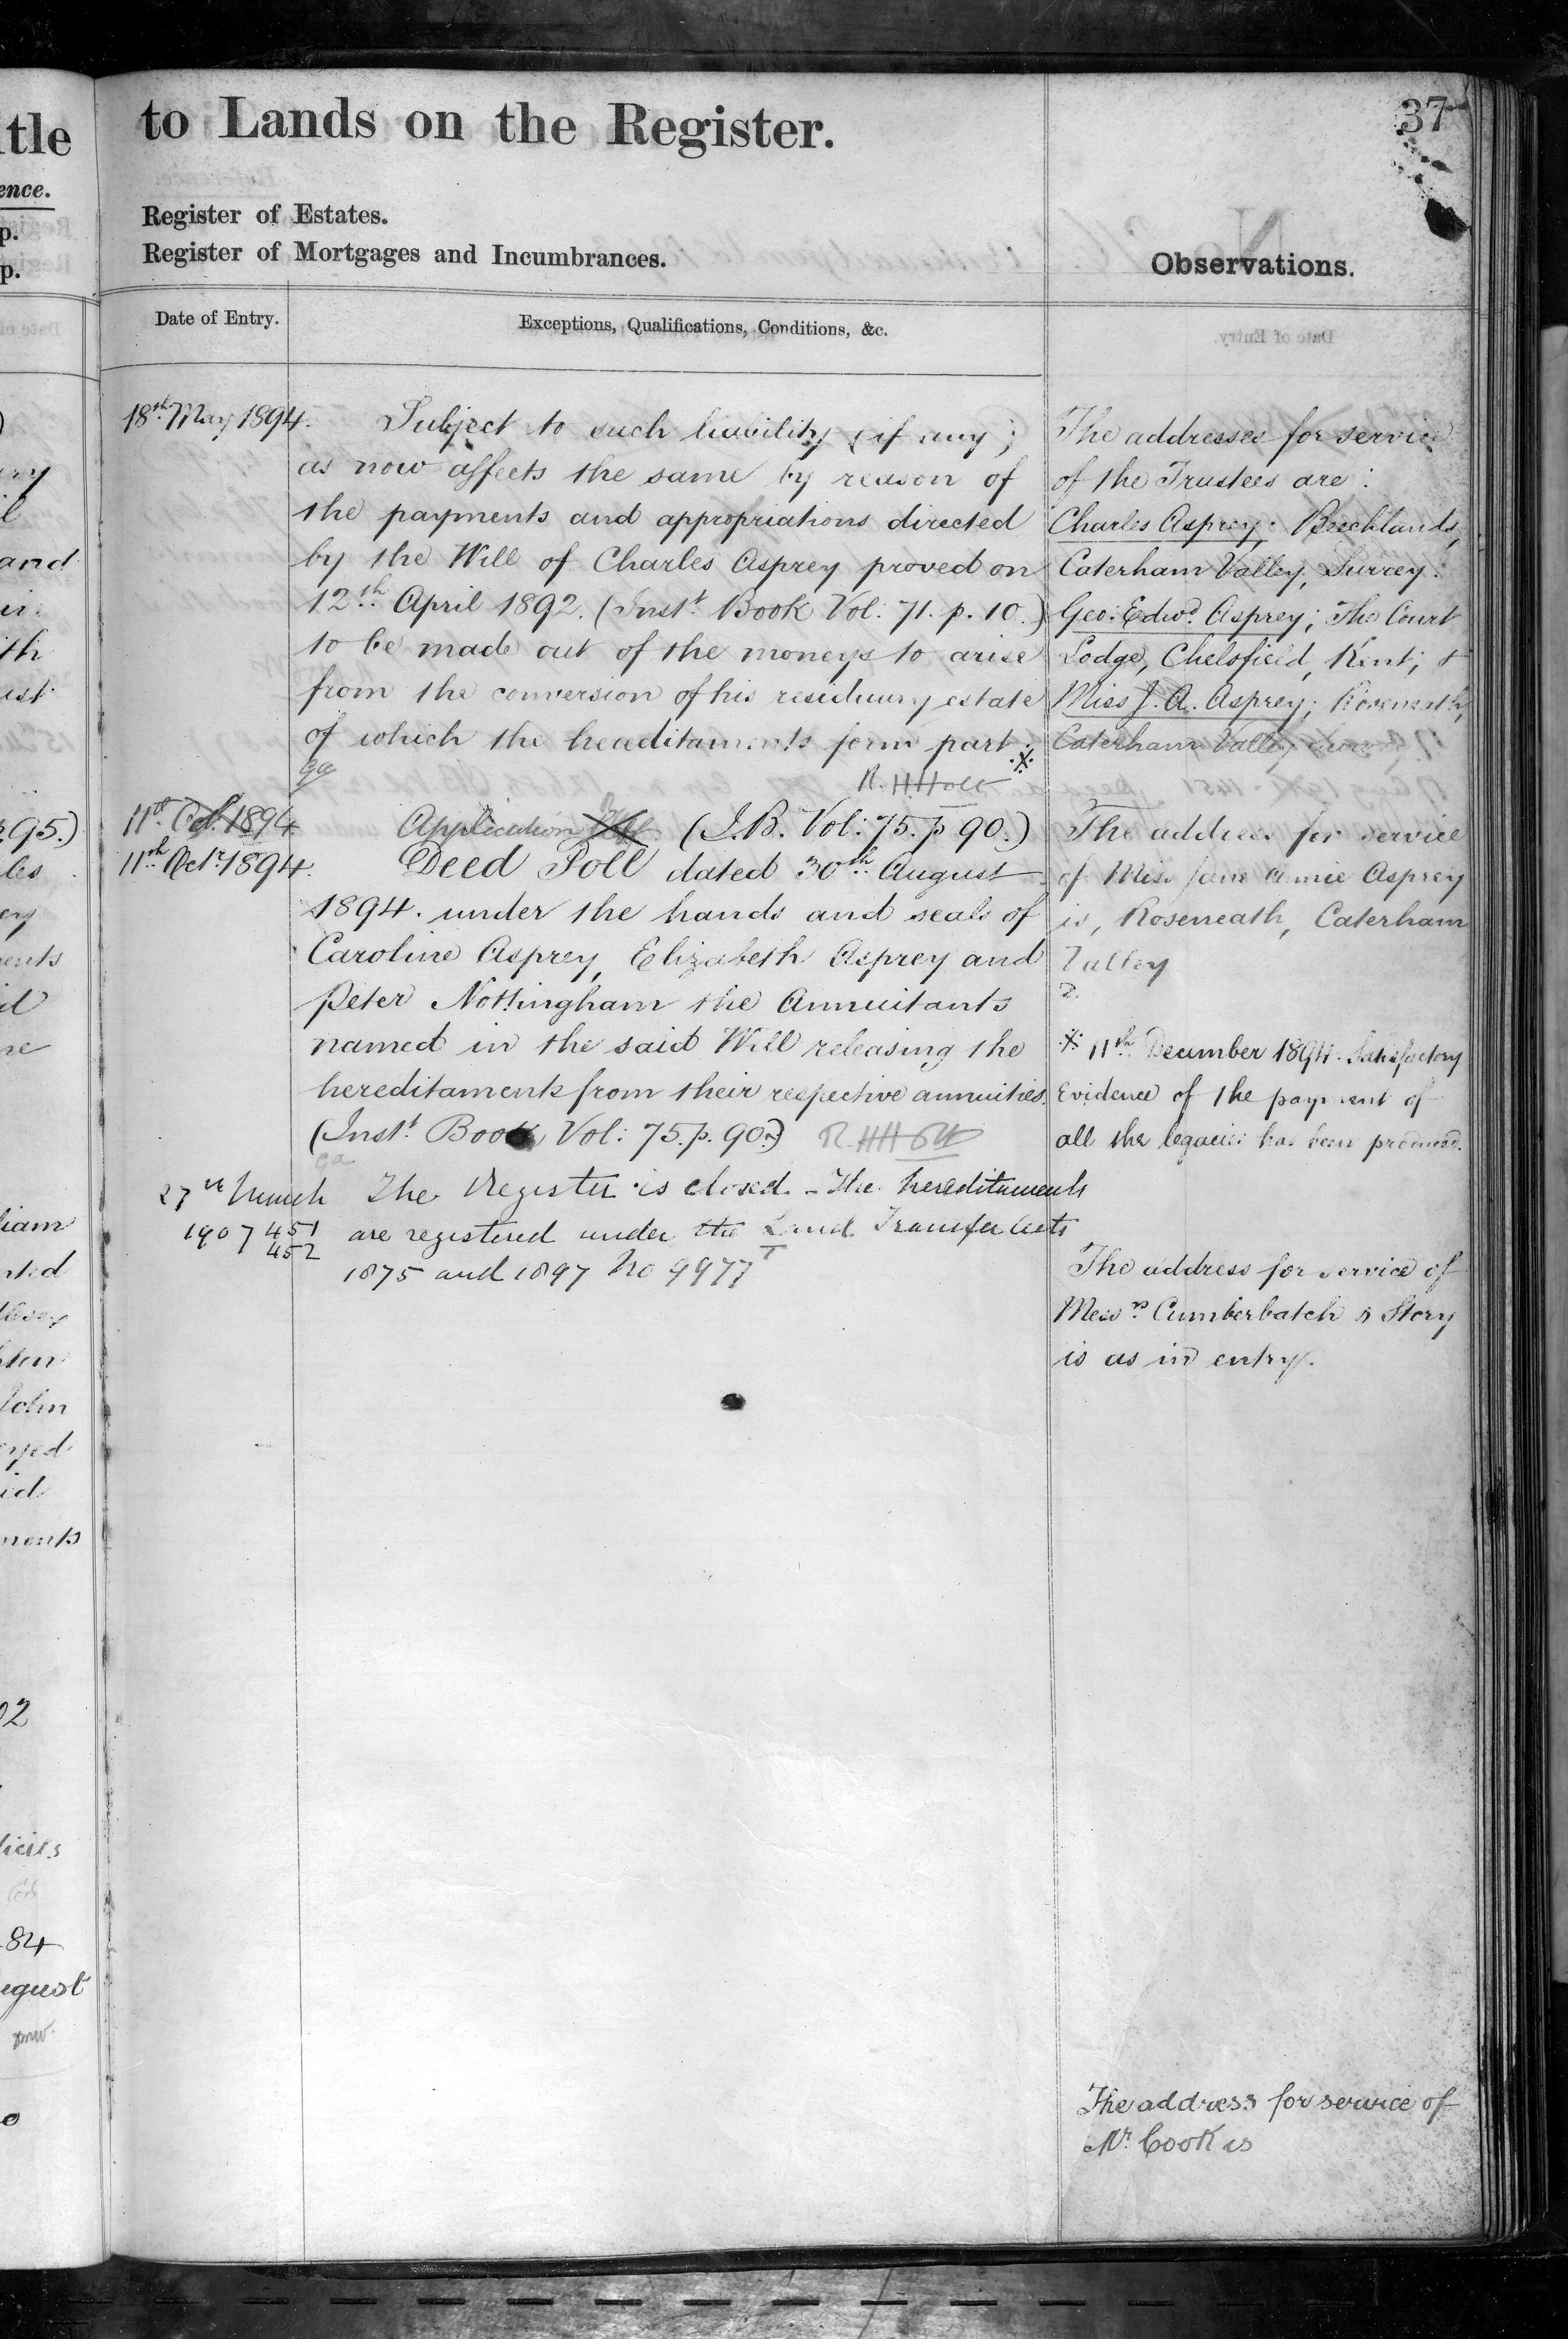 to Lands on the Register.
37
Register of Estates.
Register of Mortgages and Incumbrances.
Observations.
Date of Entry.
Exceptions, Qualifications, Conditions, &c.
18th May 1894.
Subject to such liability (if any)
as now affects the same by reason of
the payments and appropriations directed
by the Will of Charles Asprey proved on
12th April 1892. (Inst. Book Vol: 71. p. 10.)
to be made out of the moneys to arise
from the conversion of his residuary estate
of which the hereditaments form part.
R. H. Holt
11th Oct. 1894
Application (I.B. Vol: 75. p 90.)
11th Octr. 1894.
Deed Poll dated 30th August
1894. under the hands and seals of
Caroline Asprey, Elizabeth Asprey and
Peter Nottingham the Annuitants
named in the said Will releasing the
hereditaments from their respective annuities.
(Inst. Book Vol: 75. p. 90.) R. H. Holt
27th March
1907 451
452
The Register is closed - The hereditaments
are registered under the Land Transfer Acts
1875 and 1897 No 9977
The addresses for service
of the Trustees are:
Charles Asprey; Beechlands,
Caterham Valley, Surrey.
Geo: Edwd. Asprey; The Court
Lodge, Chelsfield, Kent; &
Miss J. A. Asprey; Roseneath,
Caterham Valley
The address for service
of Miss Jane Annie Asprey
is, Roseneath, Caterham
Valley
11th December 1894. Satisfactory
Evidence of the payment of
all the legacies has been produced.
The address for service of
Messrs. Cumberbatch & Story
is as in entry.
The address for service of
Mr. Cook is
tle
ence.
p.
p.
and
ust
95.)
les
ey
ents
liam
John
ments
02
84
ugust